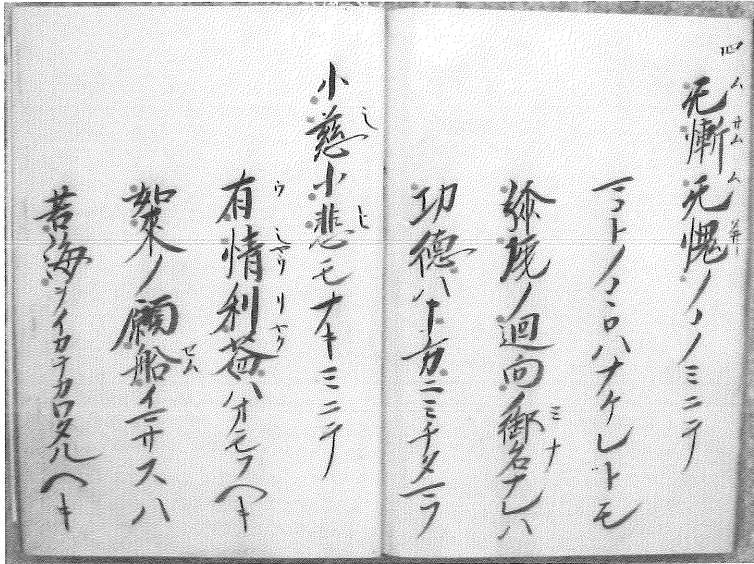 四
无慚无愧ノコノミニテ
マコトノコヽロハナケレトモ
弥陀ノ迴向ノ御名ナレハ
功德ハ十方ニミチタマフ
小慈小悲モナキミニテ
有情利益ハオモフヘキ
如來ノ願船イマサスハ
苦海ヲイカテカワタルヘキ